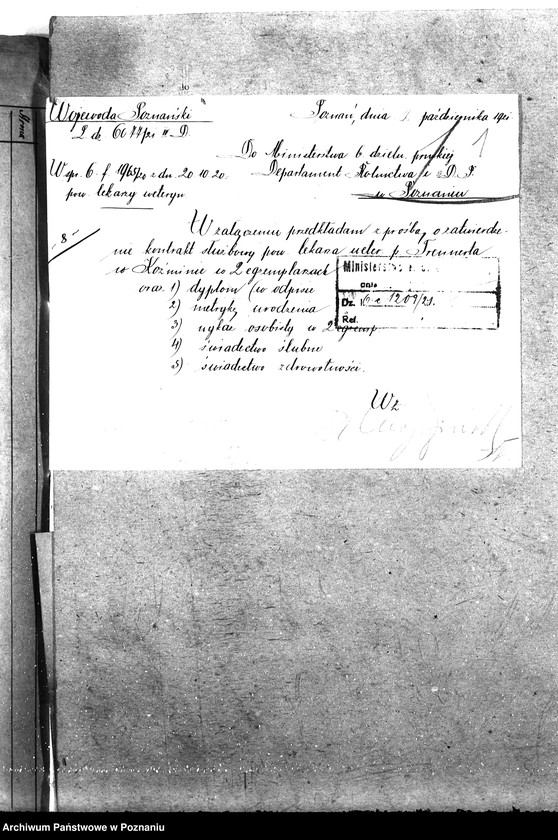 Wojewoda Poznański
L. dz. 6677/20 II D.
Poznań, dnia października 192
Do Ministerstwa b. dzieln. pruskiej
Departament Rolnictwa i D. P.
w Poznaniu
W spr. 6. f. 1965/20 z dn. 20.10.20.
pow. lekarzy weteryn
W załączeniu przedkładam z prośbą o zatwierdze-
-8-
nie kontrakt służbowy pow. lekarza weter. p. Trennerta
w Koźminie w 2 egzemplarzach
oraz 1) dyplom (w odpisie
2) metrykę urodzenia
3) wykaz osobisty w 2 egzemp
4) świadectwo ślubne
5) świadectwo zdrowotności.
Ministerstwo
dnia
Dz. 6 c 1209/21.
Ref.
Wz
Archiwum Państwowe w Poznaniu